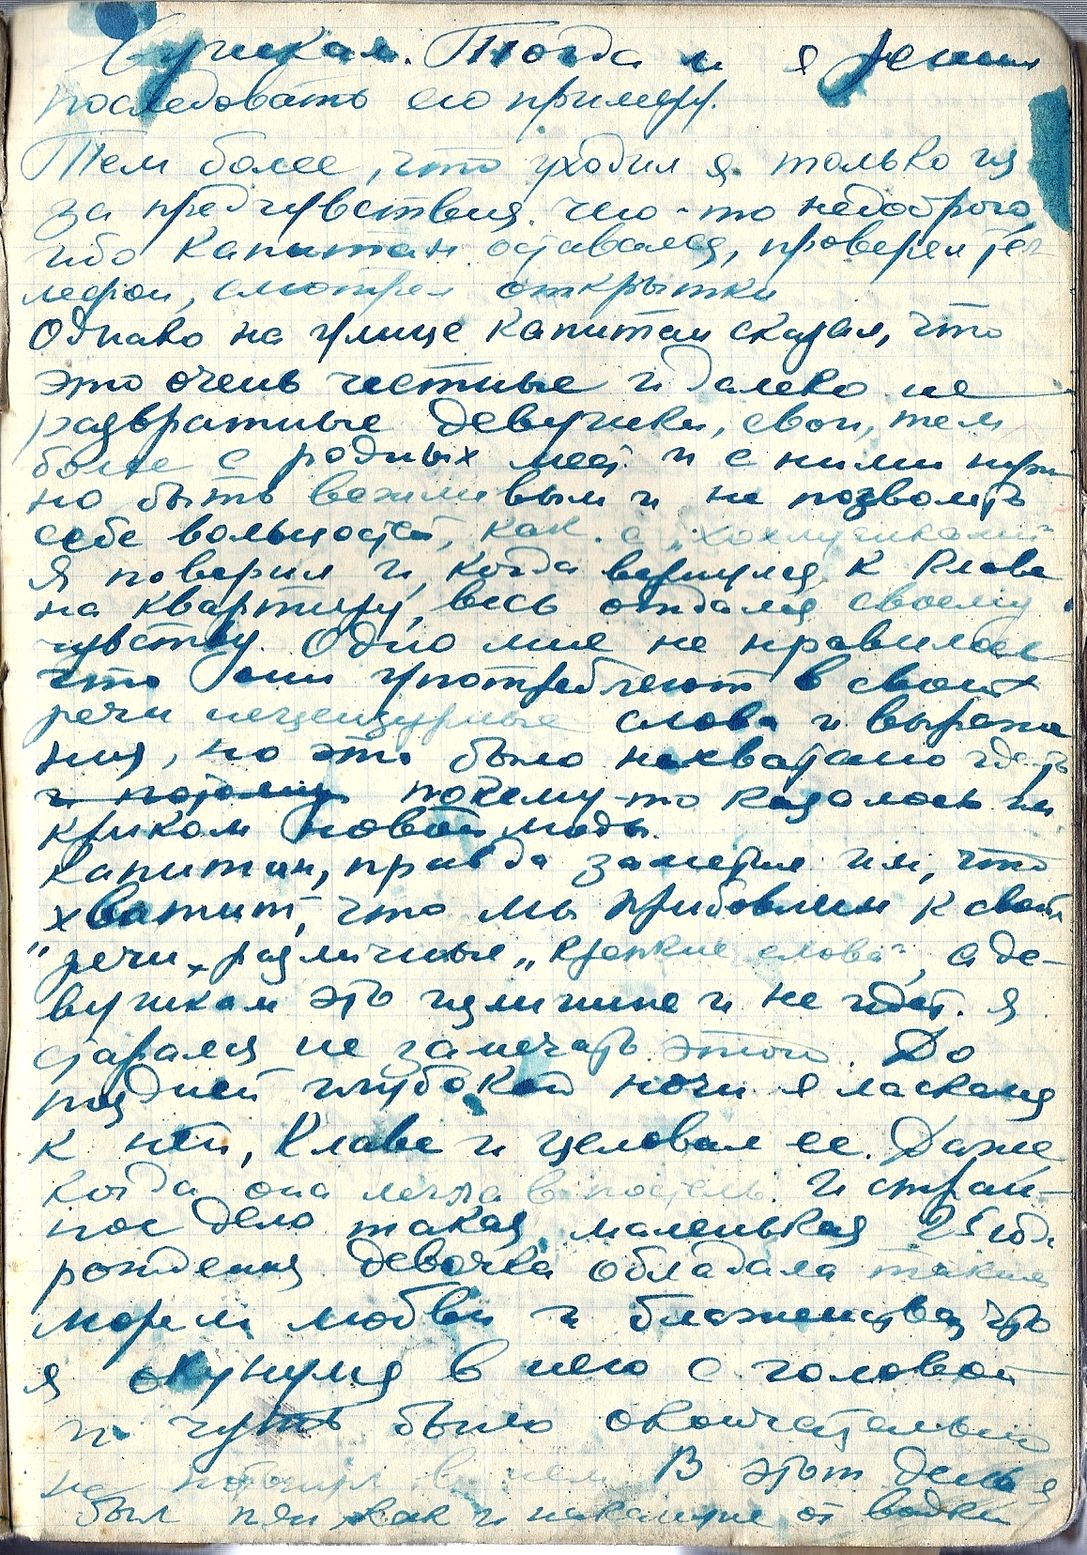 Тогда и я решил
последовать его примеру.
Тем более, что уходил я только из
за предчувствия чего-то недоброго,
ибо капитан оставался, проверял те-
лефон, смотрел открытки
Однако на улице капитан сказал, что
это очень честные и далеко не
развратные девушки, свои, тем
более с родных мест и с ними нуж
но быть вежливым и не позволять
себе вольностей, как с „хохлушками"
Я поверил и, когда вернулся к Клаве
на квартиру, весь отдался своему
чувству. Одно мне не нравилось
что они употребляют в своих
речи нецензурные слова и выраже
ния, но это было нахватано где-то
и потому почему-то казалось им
криком новой моды.
Капитан, правда заметил им, что
хватит, что мы прибавили к своей
речи различные „крепкие слова", а де-
вушкам это излишне и не идет. Я
старался не замечать этого. До
поздней глубокой ночи я ласкался
к ней, Клаве и целовал ее. Даже
когда она легла в постель. И стран-
ное дело такая маленькая, 25 года
рождения девочка обладала таким
морем любви и блаженства, что
я окунулся в него с головой
и чуть было окончательно
не потонул в нем. В этот день я
был пьян, как и накануне от водки